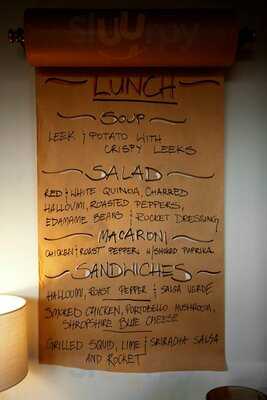 sluurpy
LUNCH
SOUP
LEEK & POTATO WITH
CRISPY LEEKS
SALAD
RED & WHITE QUINOA, CHARRED
HALLOUMI, ROASTED PEPPERS,
EDAMAME BEANS & ROCKET DRESSING
MACARONI
CHICKEN & ROAST PEPPER W/ SMOKED PAPRIKA
SANDWICHES
HALLOUMI, ROAST PEPPER & SALSA VERDE
SMOKED CHICKEN, PORTOBELLO MUSHROOM,
SHROPSHIRE BLUE CHEESE
GRILLED SQUID, LIME & SRIRACHA SALSA
AND ROCKET